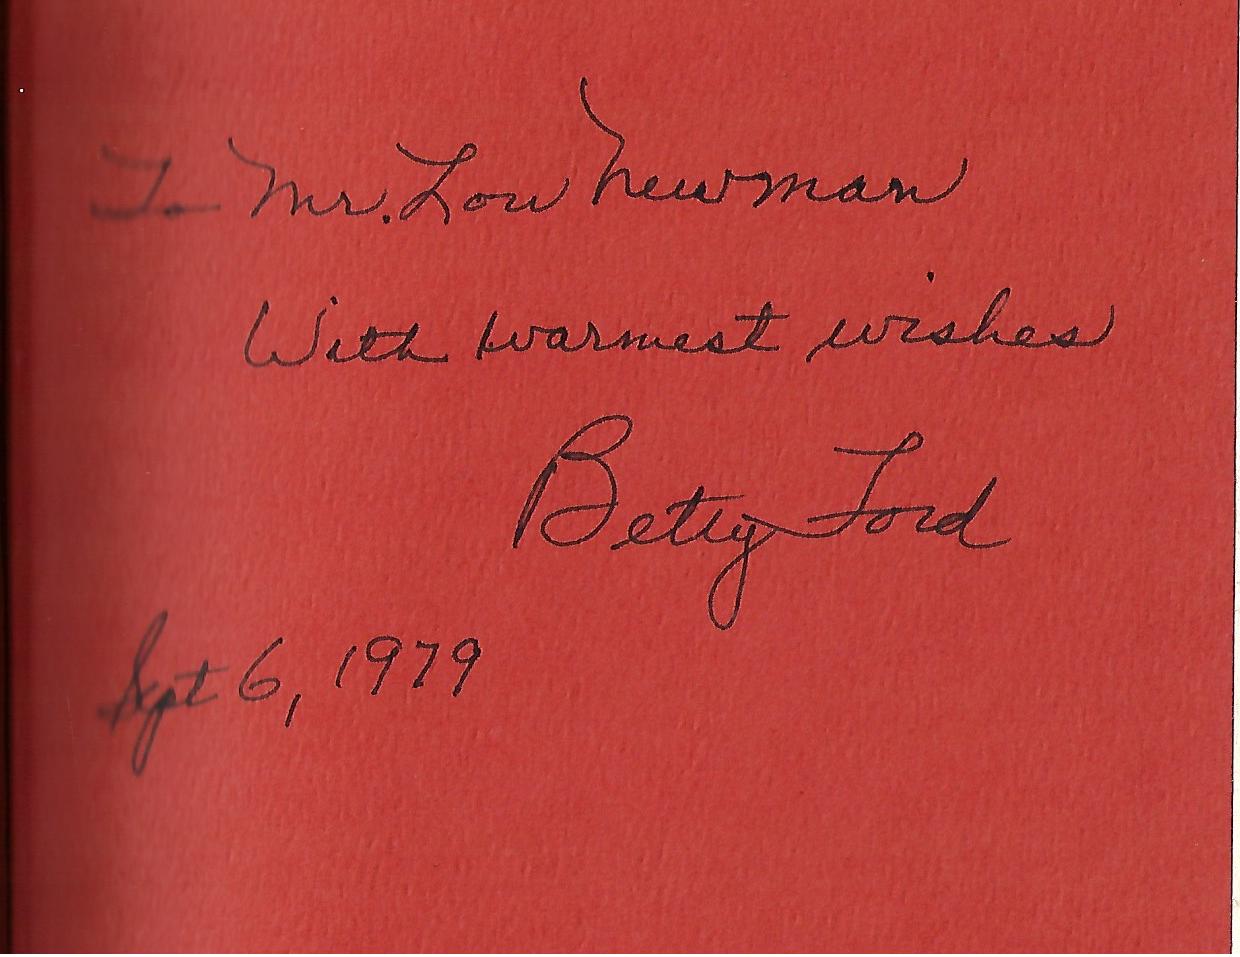 To Mr. Lou Newman
With warmest wishes
Betty Ford
Sept 6, 1979